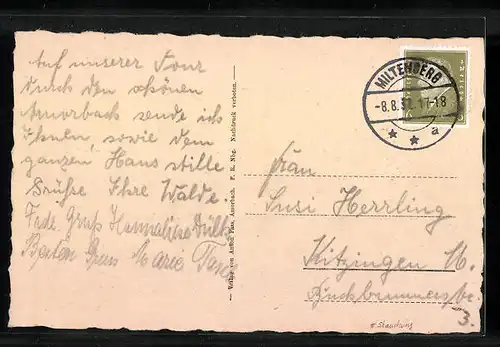 Auf unserer Tour
durch den schönen
Amorbach sende ich
Ihnen, sowie dem
ganzen Haus stille
Grüße Ihre Walde.
Frdl. Gruß Hannalise
Besten Gruss Marie
Verlag von Anton Pass, Amorbach. F. R. Nbg. Nachdruck verboten.
MILTENBERG
-8.8.31.17-18
* * a
Frau
Susi Herrling
Kitzingen M.
3.